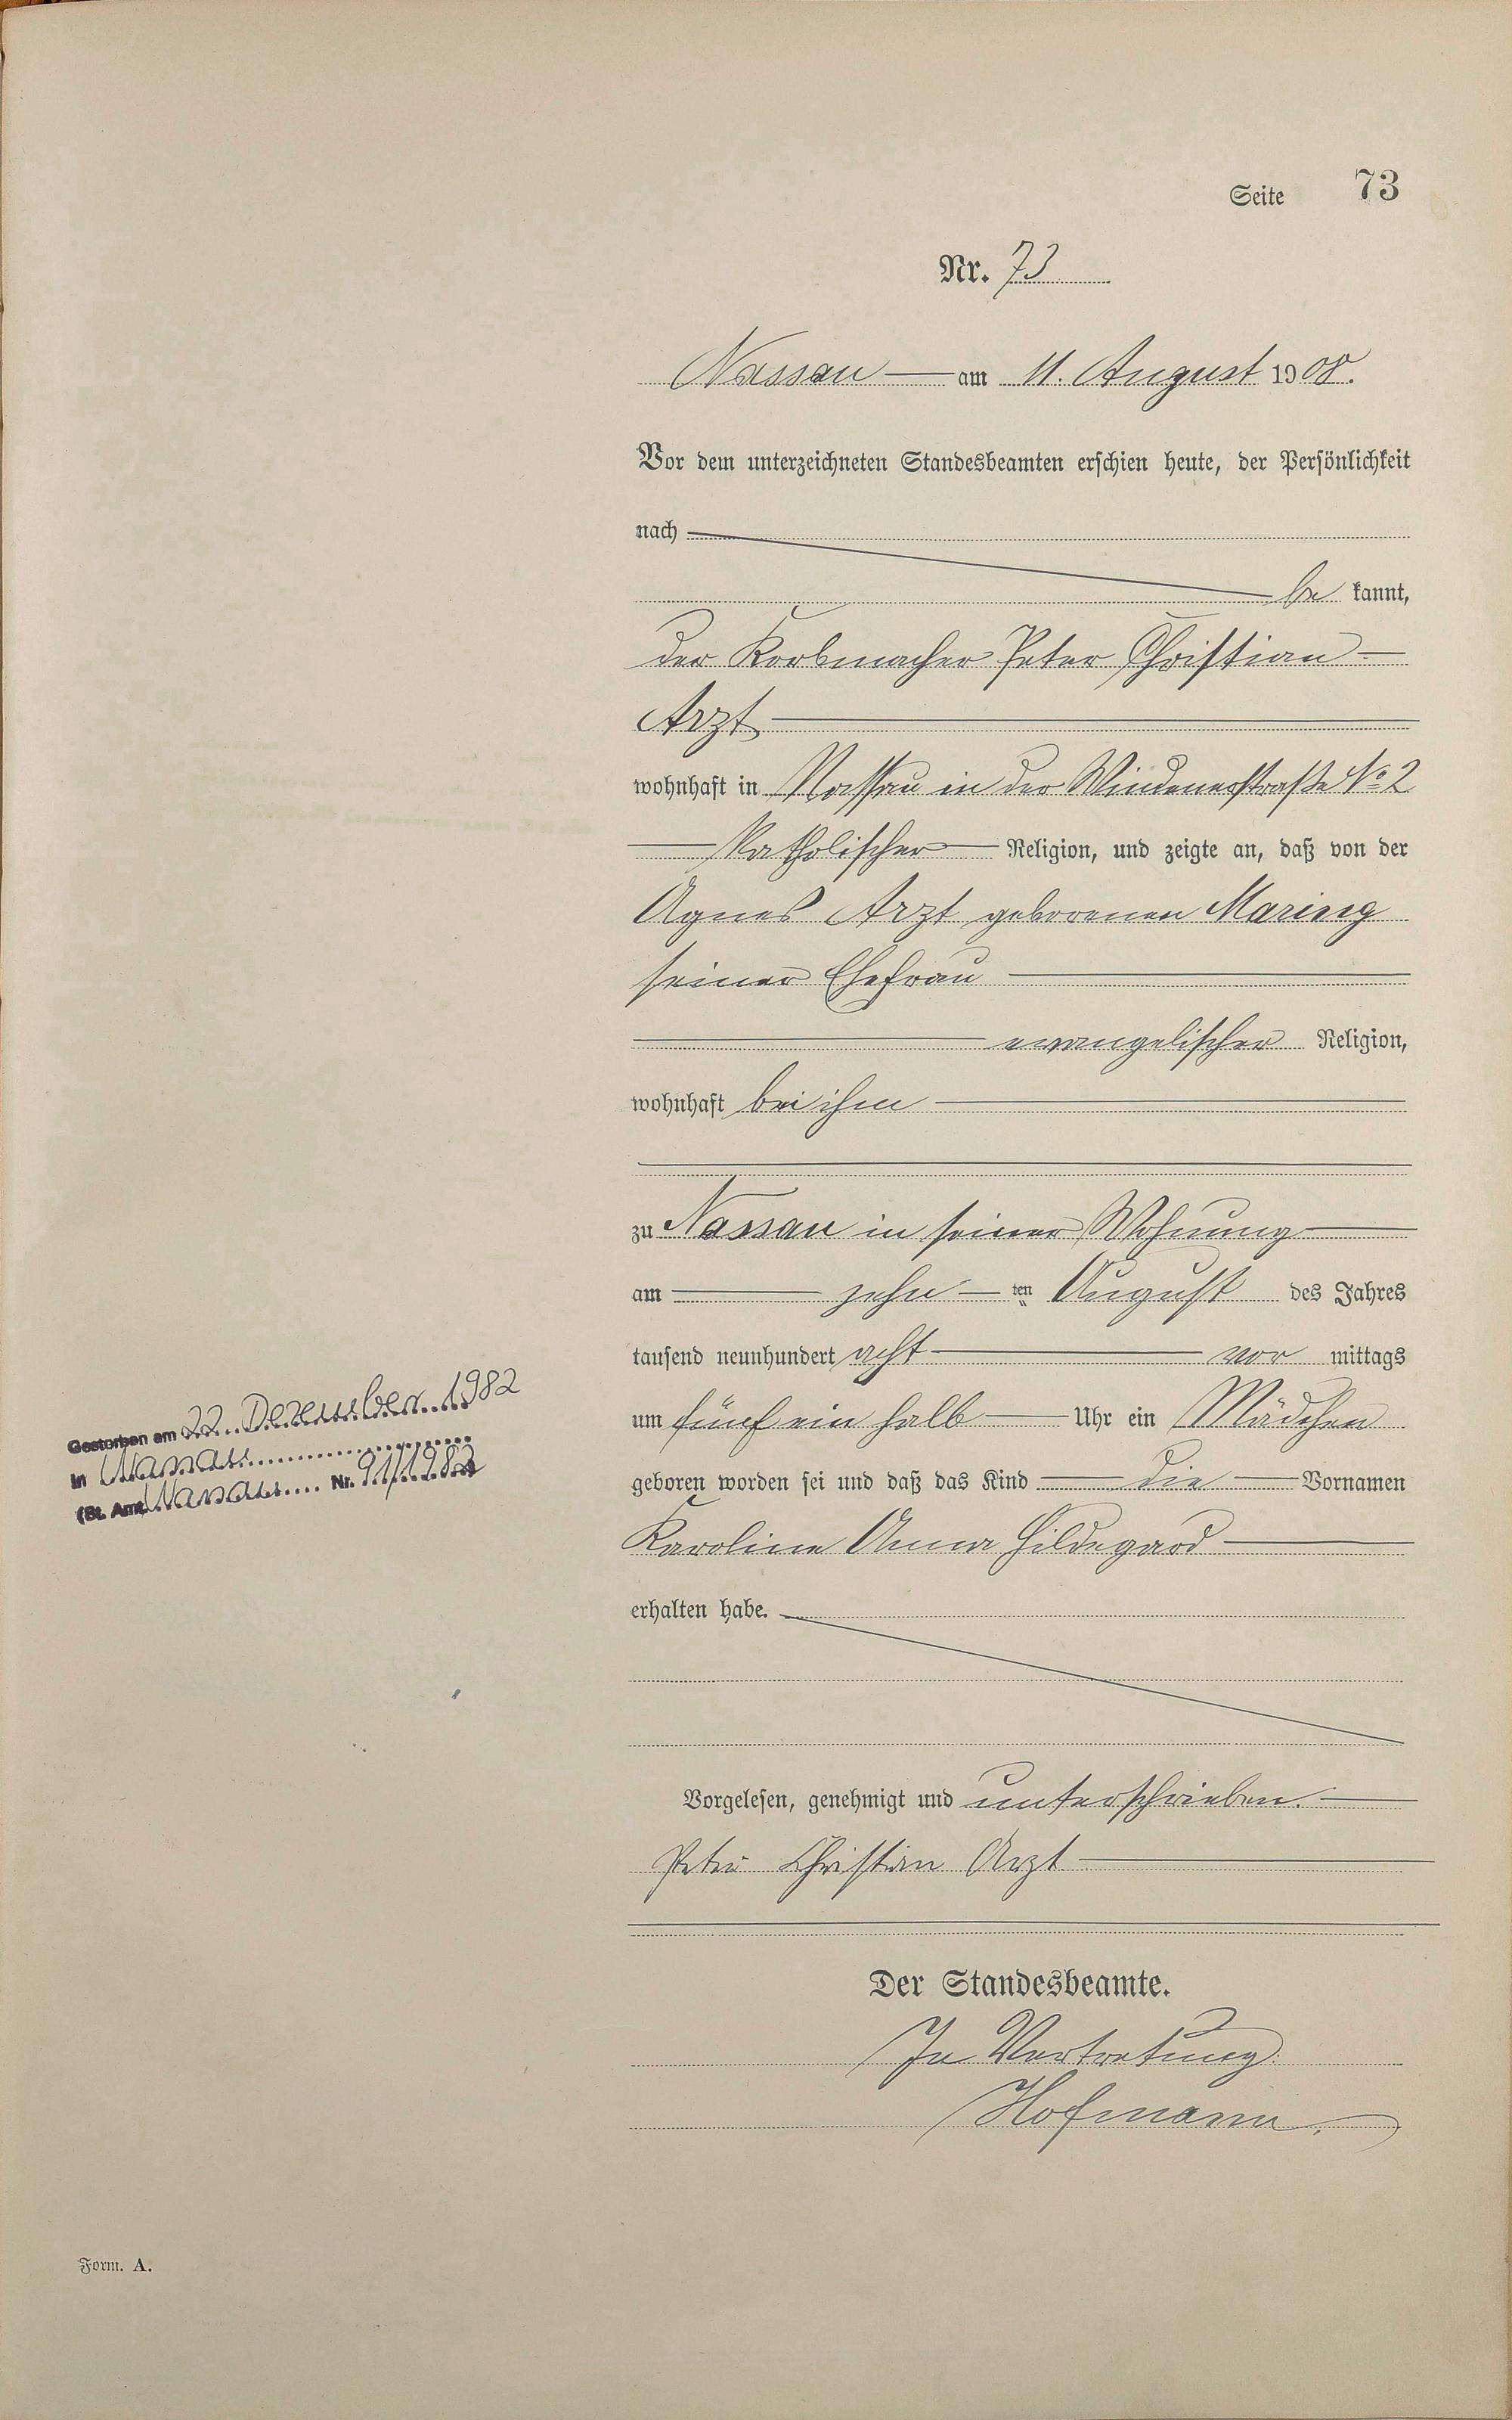 Seite 73
Nr. 73
Nassau am 11. August 1908.
Vor dem unterzeichneten Standesbeamten erschien heute, der Persönlichkeit
nach
be kannt,
der Korbmacher Peter Christian
Arzt
wohnhaft in Nassau in der Windenerstraße No 2
katholischer Religion, und zeigte an, daß von der
Agnes Arzt geborenen Maring
seiner Ehefrau
evangelischer Religion,
wohnhaft bei ihm
zu Nassau in seiner Wohnung
am zehn ten August des Jahres
tausend neunhundert acht vor mittags
um fünf ein halb Uhr ein Mädchen
geboren worden sei und daß das Kind die Vornamen
Karoline Anna Hildegard
erhalten habe.
Vorgelesen, genehmigt und unterschrieben.
Peter Christian Arzt
Der Standesbeamte.
In Vertretung:
Hofmann.
Gestorben am 22. Dezember 1982
in Nassau
(St. Amt Nassau Nr. 91/1982
Form. A.